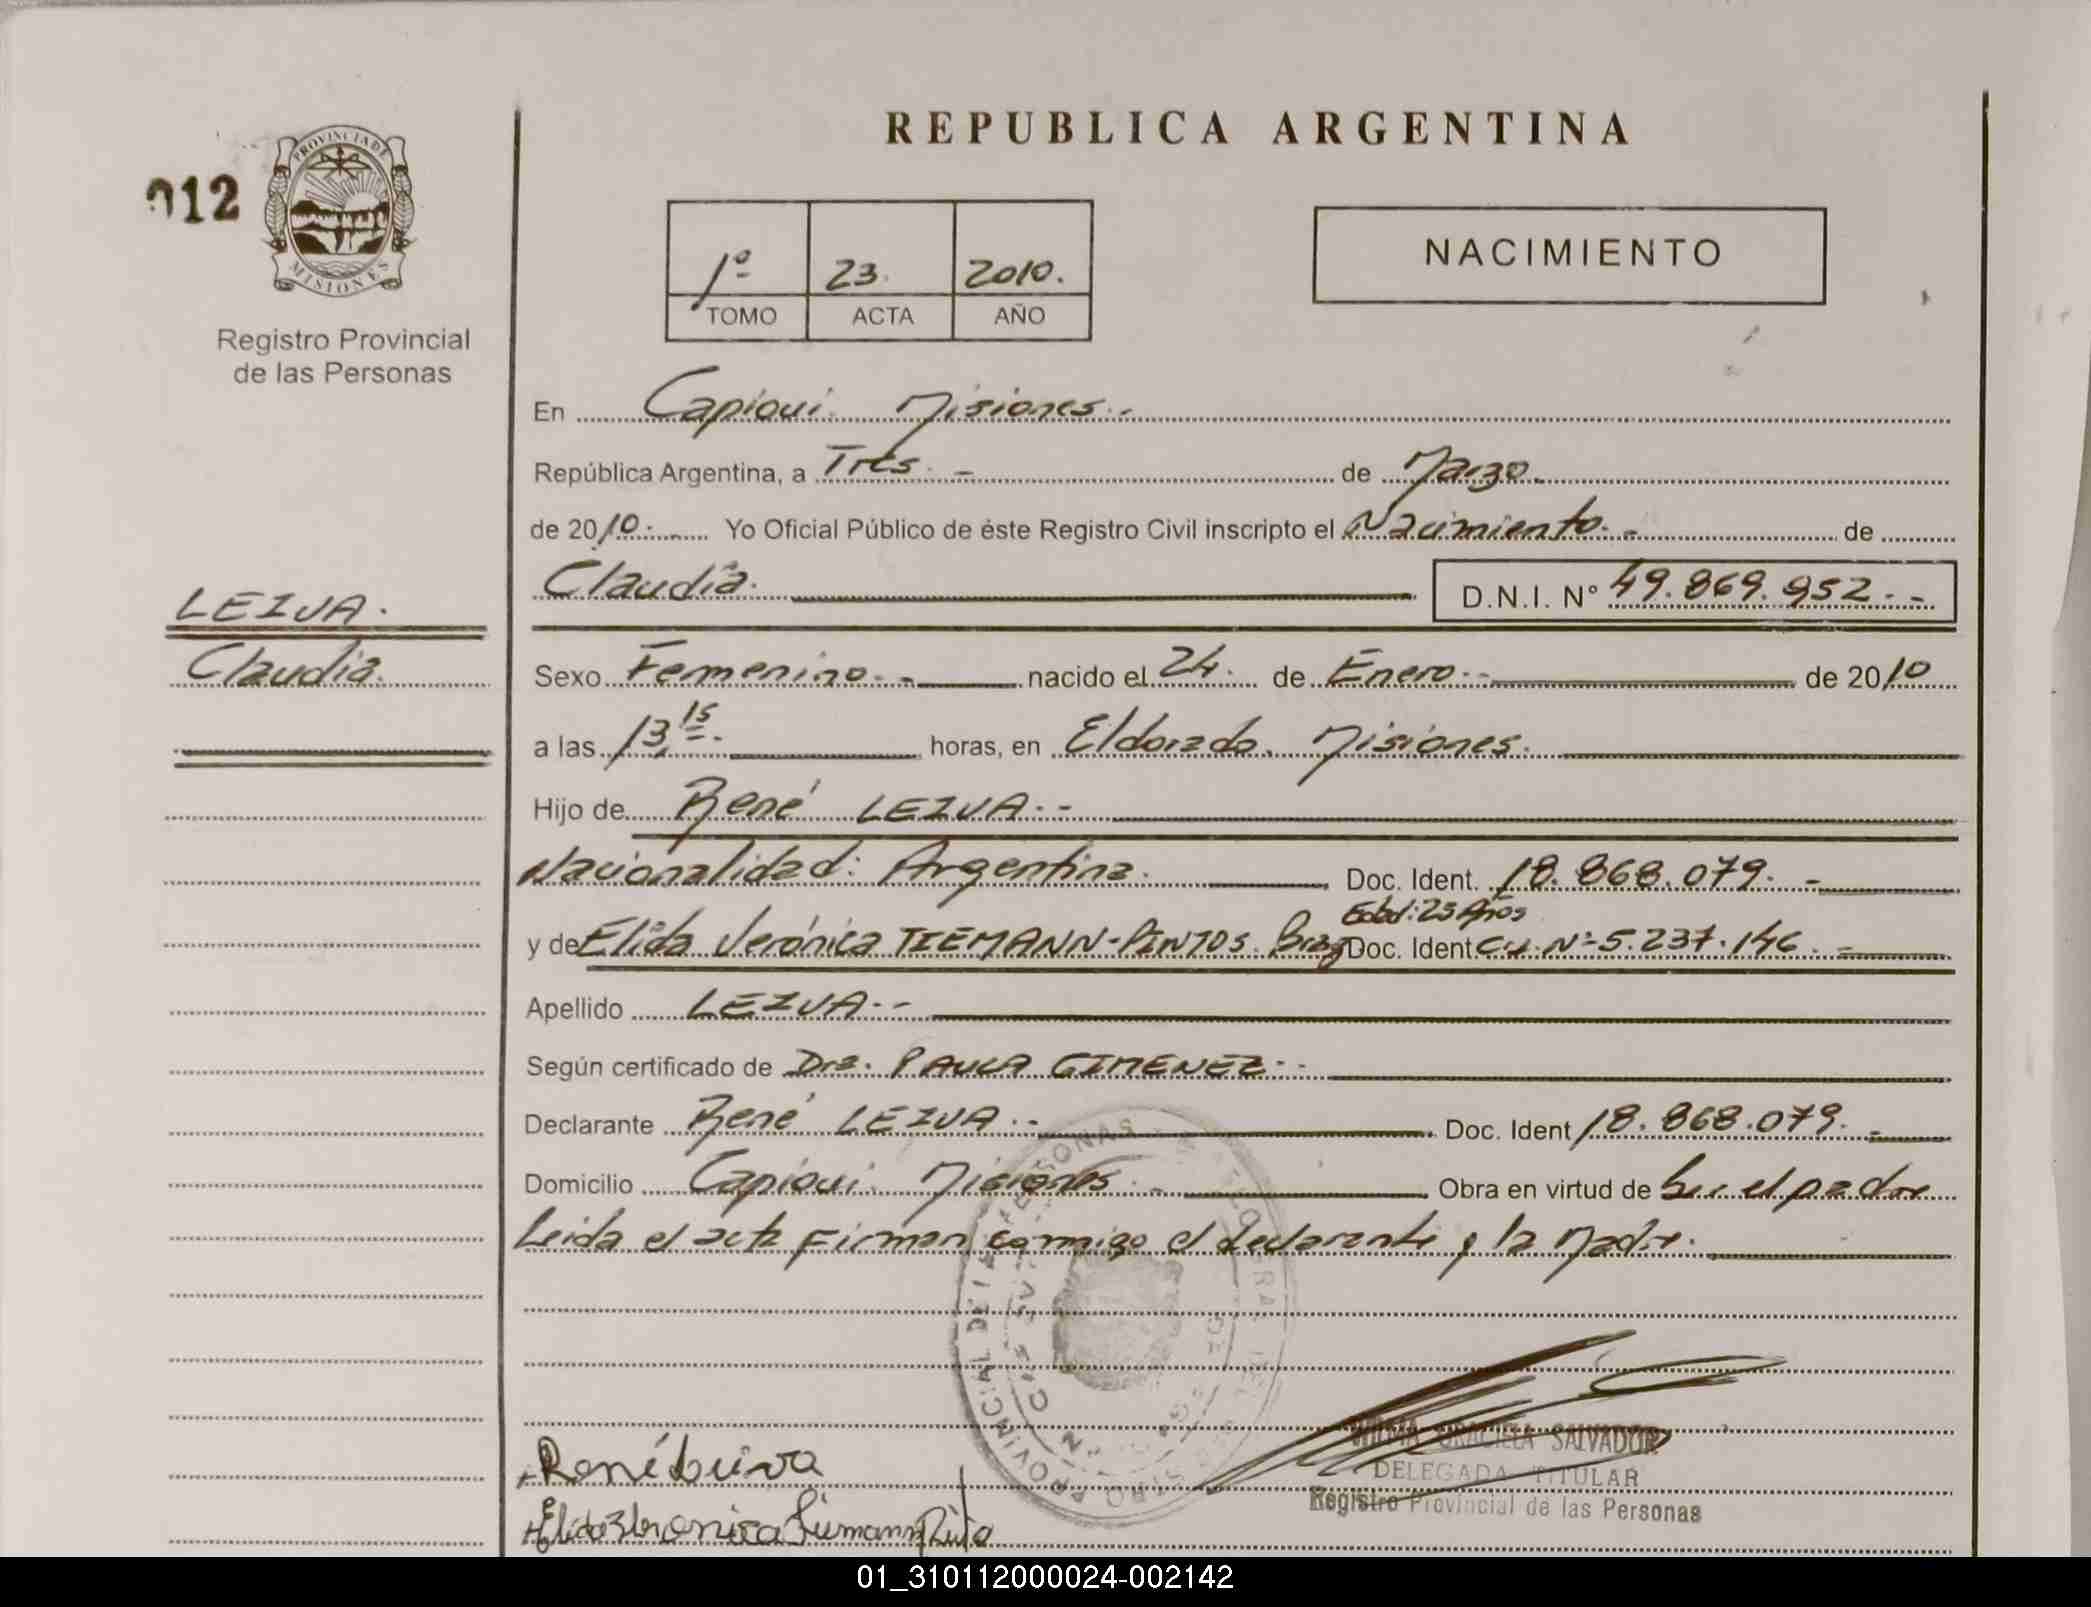 REPUBLICA ARGENTINA
012
PROVINCIA DE
MISIONES
Registro Provincial
de las Personas
1º 23. 2010.
TOMO ACTA AÑO
NACIMIENTO
En Capioui Misiones.-
República Argentina, a Tres.- de Marzo.
de 2010.- Yo Oficial Público de éste Registro Civil inscripto el Nacimiento.- de
Claudia. D.N.I. Nº 49.869.952.--
LEIVA.
Claudia.
Sexo Femenino.- nacido el 24. de Enero.- de 2010
a las 13,15.- horas, en Eldorado. Misiones.
Hijo de René LEIVA.--
Nacionalidad: Argentina. Doc. Ident. 18.868.079.-
Edad: 25 Años
y de Elida Verónica TIEMANN-PINTOS. Braz Doc. Ident. C.I. Nº 5.237.146.-
Apellido LEIVA.--
Según certificado de Dra. PAULA GIMENEZ.--
Declarante René LEIVA.-- Doc. Ident 18.868.079.-
Domicilio Capioui. Misiones.- Obra en virtud de Ser el padre
Leida el acta Firman conmigo el declarante y la Madre.
René Leiva
WILMA GRACIELA SALVADOR
DELEGADA TITULAR
Registro Provincial de las Personas
Elida Veronica Tiemann Pinto
01_310112000024-002142